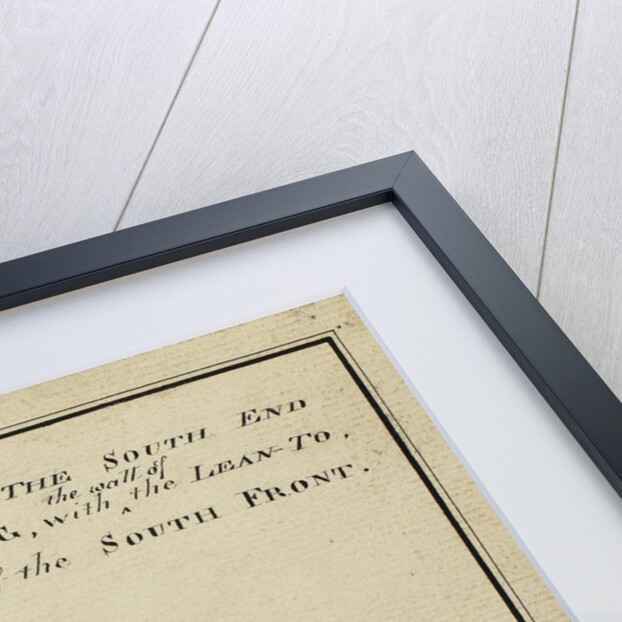 THE SOUTH END
the wall of
G, with ‸ the LEAN-TO,
the SOUTH FRONT.